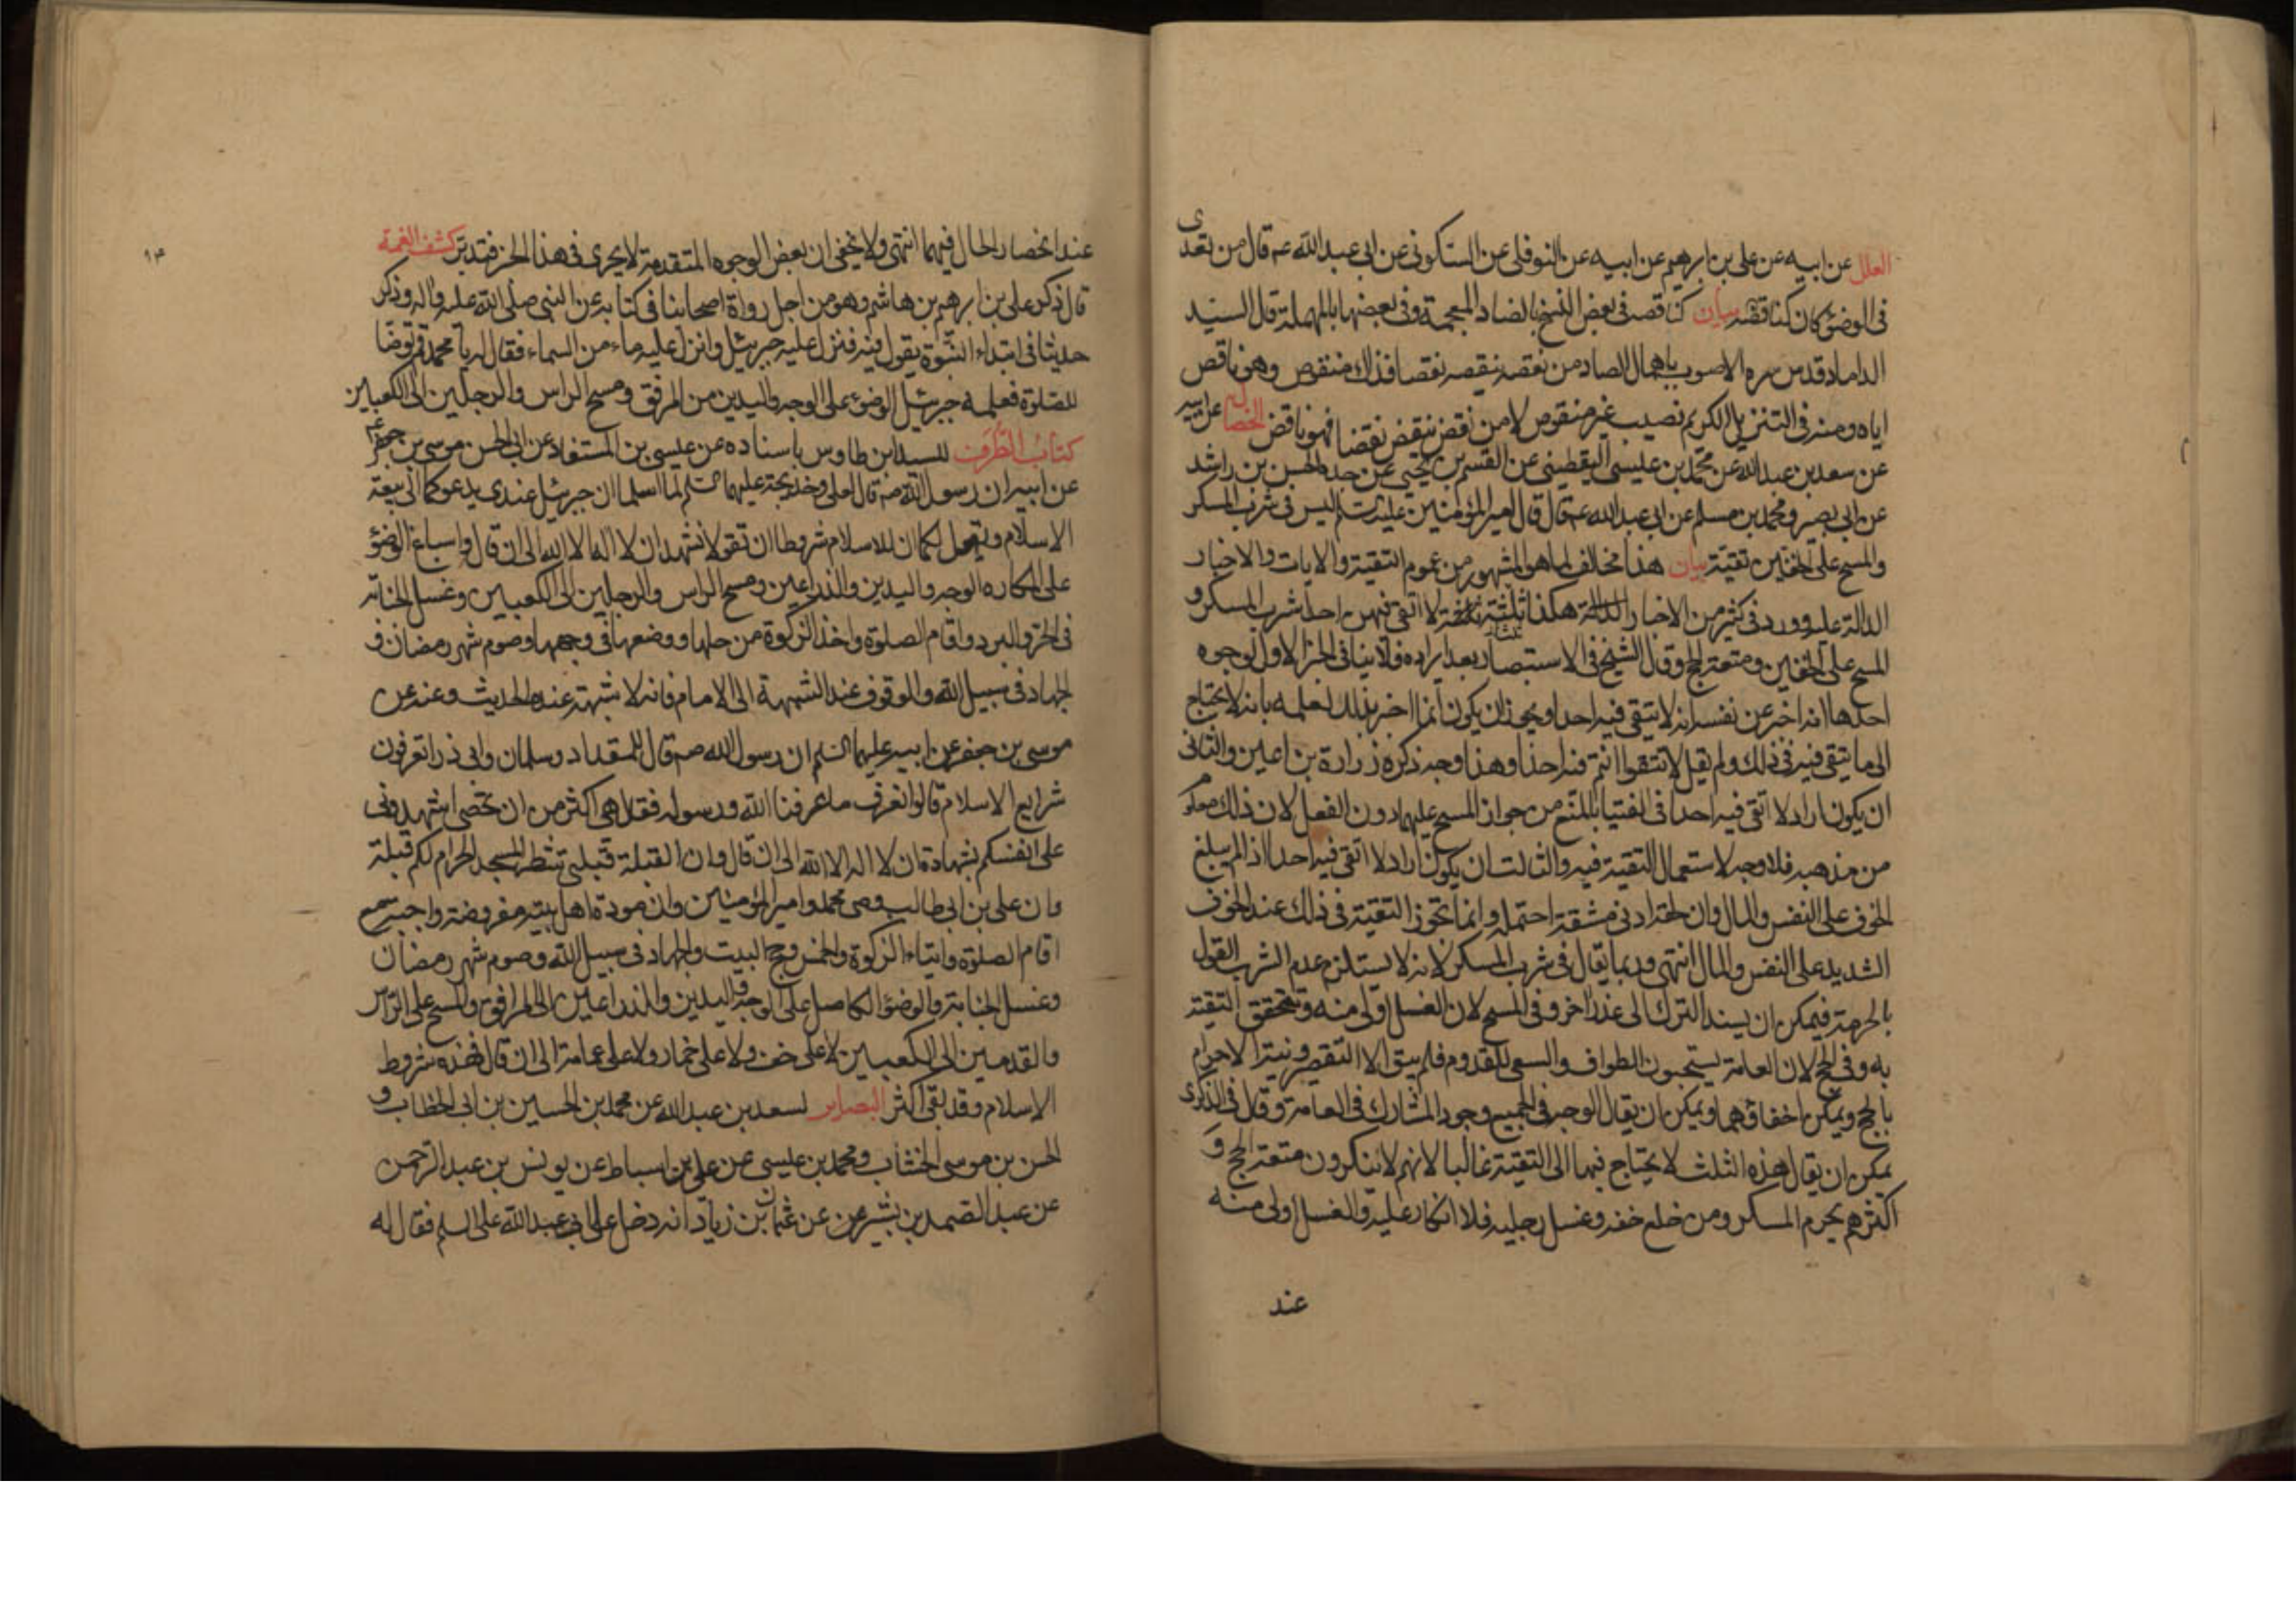 العلل عن ابيه عن على بن ابرهيم عن ابيه عن النوفلى عن السكونى عن ابى عبدالله ع قال من تعدى
فى الوضوء كان كناقضه بيان كناقصه فى بعض النسخ بالضاد المعجمة وفى بعضها بالمهملة قال السيد
الداماد قدس سره الاصوب باهمال الصاد من نقصه ينقصه نقصا فذلك منقوص وهو ناقص
اياه ومنه فى التنزيل الكريم نصيب غير منقوص لا من نقض ينقض نقضا فهو ناقض الخصال عن ابيه
عن سعد بن عبدالله عن محمد بن عيسى اليقطينى عن القسم بن يحيى عن جده الحسن بن راشد
عن ابى بصير ومحمد بن مسلم عن ابى عبدالله ع قال قال امير المؤمنين عليه السلم ليس فى شرب المسكر
والمسح على الخفين تقية بيان هذا مخالف لما هو المشهور من عموم التقية والايات والاخبار
الدالة عليه وورد فى كثير من الاخبار هكذا ثلثة لا اتقى فيهن احدا شرب المسكر و
المسح على الخفين ومتعة الحج وقال الشيخ فى الاستبصار بعد ايراده ولا ينافى الخبر الاول لوجوه
احدها انه اخبر عن نفسه انه لا يتقى فيه احدا ويجوز ان يكون انما اخبر بذلك لعلمه بانه لا يحتاج
الى ما يتقى فيه فى ذلك ولم يقل لا تتقوا انتم فيه احدا وهذا وجه ذكره زرارة بن اعين والثانى
ان يكون اراد لا اتقى فيه احدا فى الفتيا بالمنع من جواز المسح عليهما دون الفعل لان ذلك معلوم
من مذهبه فلا وجه لاستعمال التقية فيه والثالث ان يكون اراد لا اتقى فيه احدا اذا لم يبلغ
الخوف على النفس والمال وان لحقه ادنى مشقة احتمله وانما تجوز التقية فى ذلك عند الخوف
الشديد على النفس والمال انتهى وربما يقال فى شرب المسكر لانه لا يستلزم عدم الشرب القول
بالحرمة فيمكن ان يسند الترك الى عذر اخر وفى المسح لان الغسل اولى منه وتتحقق التقية
به وفى الحج لان العامة يستحبون الطواف والسعى للقدوم فلم يبق الا التقصير ونية الاحرام
بالحج ويمكن اخفاؤهما ويمكن ان يقال الوجه فى الجميع وجود المشارك فى العامة وقال فى الذكرى
يمكن ان يقال هذه الثلث لا يحتاج فيها الى التقية غالبا لانهم لا ينكرون متعة الحج و
اكثرهم يحرم المسكر ومن خلع خفه وغسل رجليه فلا انكار عليه والغسل اولى منه
عند
٩٤
عند انحصار الحال فيهما انتهى ولا يخفى ان بعض الوجوه المتقدمة لا يجرى فى هذا الخبر فتدبر كشف الغمة
قال ذكر على بن ابرهيم بن هاشم وهو من اجل رواة اصحابنا فى كتابه عن النبى صلى الله عليه واله وذكر
حديثا فى ابتداء النبوة يقول فيه فنزل عليه جبرئيل وانزل عليه ماء من السماء فقال له يا محمد قم توضا
للصلوة فعلمه جبرئيل الوضوء على الوجه واليدين من المرفق ومسح الراس والرجلين الى الكعبين
كتاب الطرف للسيد ابن طاوس باسناده عن عيسى بن المستفاد عن ابى الحسن موسى بن جعفر ع
عن ابيه ان رسول الله ص قال لعلى وخديجة عليهما السلم لما اسلما ان جبرئيل عندى يدعوكما الى بيعة
الاسلام ويقول لكما ان للاسلام شروطا ان تقولا نشهد ان لا اله الا الله الى ان قال واسباغ الوضوء
على المكاره الوجه واليدين والذراعين ومسح الراس والرجلين الى الكعبين وغسل الجنابة
فى الحر والبرد واقام الصلوة واخذ الزكوة من حلها ووضعها فى وجهها وصوم شهر رمضان و
الجهاد فى سبيل الله والوقوف عند الشبهة الى الامام فانه لا شبهة عنده الحديث وعنه عن
موسى بن جعفر عن ابيه عليهما السلم ان رسول الله ص قال للمقداد وسلمان وابى ذر اتعرفون
شرايع الاسلام قالوا نعرف ما عرفنا الله ورسوله فقال هى اكثر من ان تحصى اشهدونى
على انفسكم بشهادة ان لا اله الا الله الى ان قال وان القبلة قبلتى شطر المسجد الحرام لكم قبلة
وان على بن ابى طالب وصى محمد وامير المؤمنين وان مودة اهل بيته مفروضة واجبة مع
اقام الصلوة وايتاء الزكوة والخمس وحج البيت والجهاد فى سبيل الله وصوم شهر رمضان
وغسل الجنابة والوضوء الكامل على الوجه واليدين والذراعين الى المرافق والمسح على الراس
والقدمين الى الكعبين لا على خف ولا على خمار ولا على عمامة الى ان قال فهذه شروط
الاسلام وقد بقى اكثر البصاير لسعد بن عبدالله عن محمد بن الحسين بن ابى الخطاب و
الحسن بن موسى الخشاب ومحمد بن عيسى عن على بن اسباط عن يونس بن عبدالرحمن
عن عبد الصمد بن بشير عن عثمان بن زياد انه دخل على ابى عبدالله عليه السلم فقال له